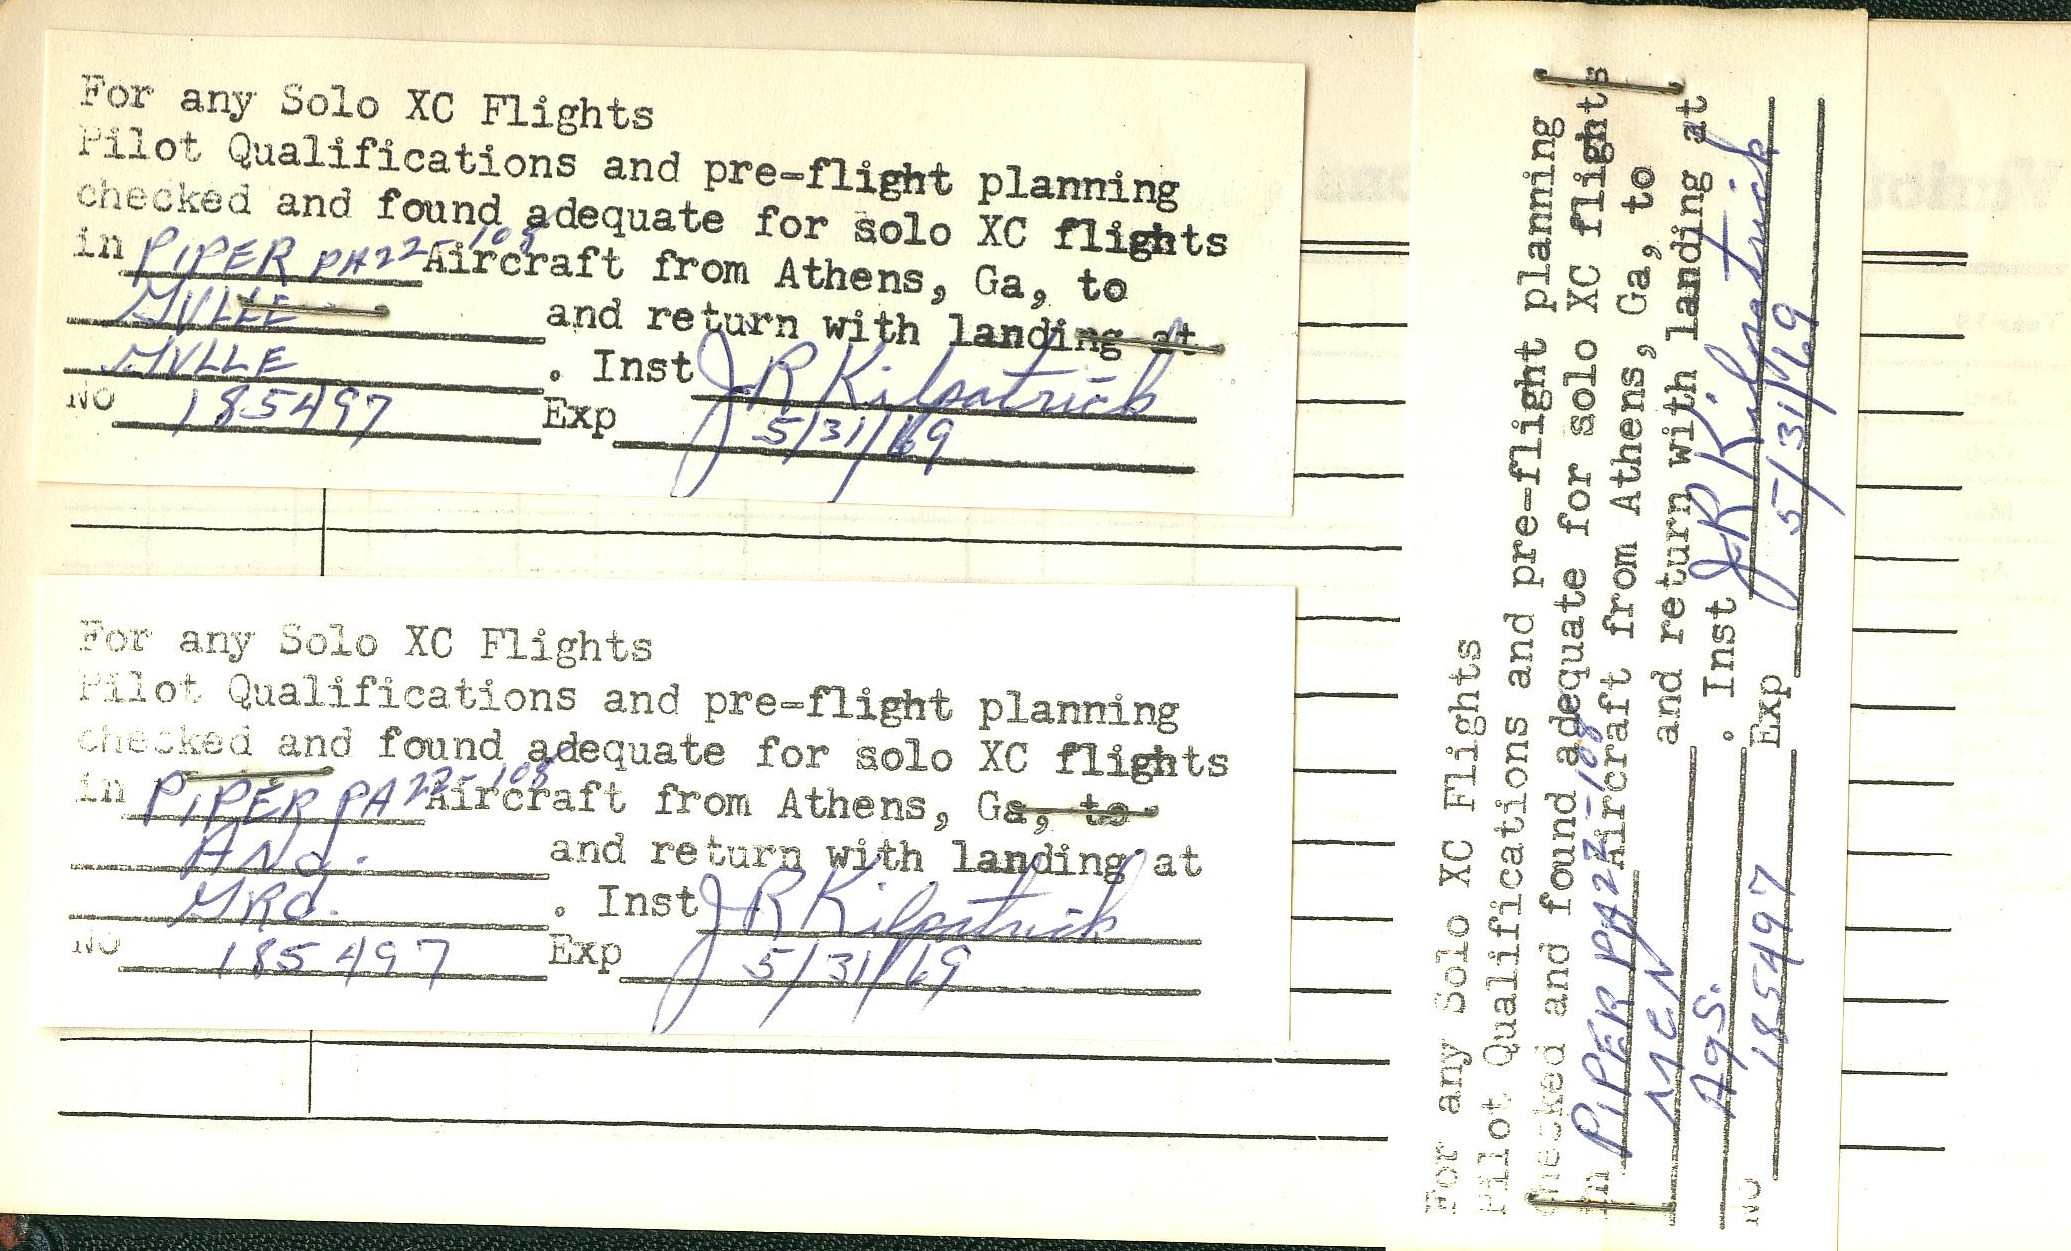 For any Solo XC Flights
Pilot Qualifications and pre-flight planning
checked and found adequate for solo XC flights
in PIPER PA22-108 Aircraft from Athens, Ga, to
GVLLE and return with landing at
GVLLE . Inst J R Kilpatrick
NO 185497 Exp 5/31/69
For any Solo XC Flights
Pilot Qualifications and pre-flight planning
checked and found adequate for solo XC flights
in PIPER PA22-108 Aircraft from Athens, Ga, to
AND. and return with landing at
GRD. . Inst J R Kilpatrick
NO 185497 Exp 5/31/69
For any Solo XC Flights
Pilot Qualifications and pre-flight planning
checked and found adequate for solo XC flights
in PIPER PA22-108 Aircraft from Athens, Ga, to
MCN and return with landing at
AgS. . Inst J R Kilpatrick
NO 185497 Exp 5/31/69